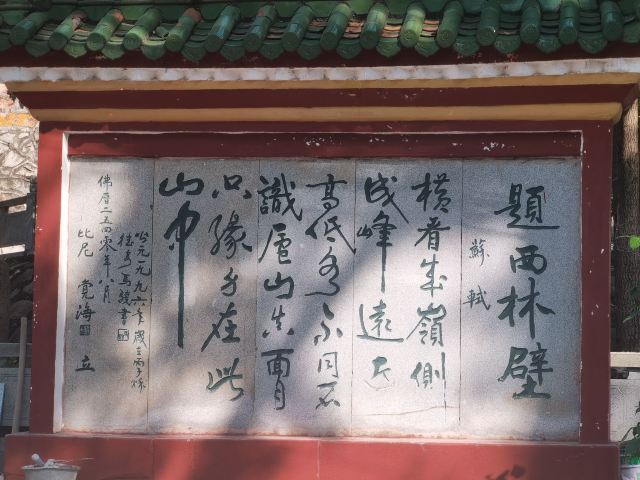 題西林壁
蘇軾
橫看成嶺側
成峰遠近
高低各不同不
識廬山真面目
只緣身在此
山中
公元一九九六年歲在丙子秋
書
佛曆二五四零年八月
比尼 寬海 立